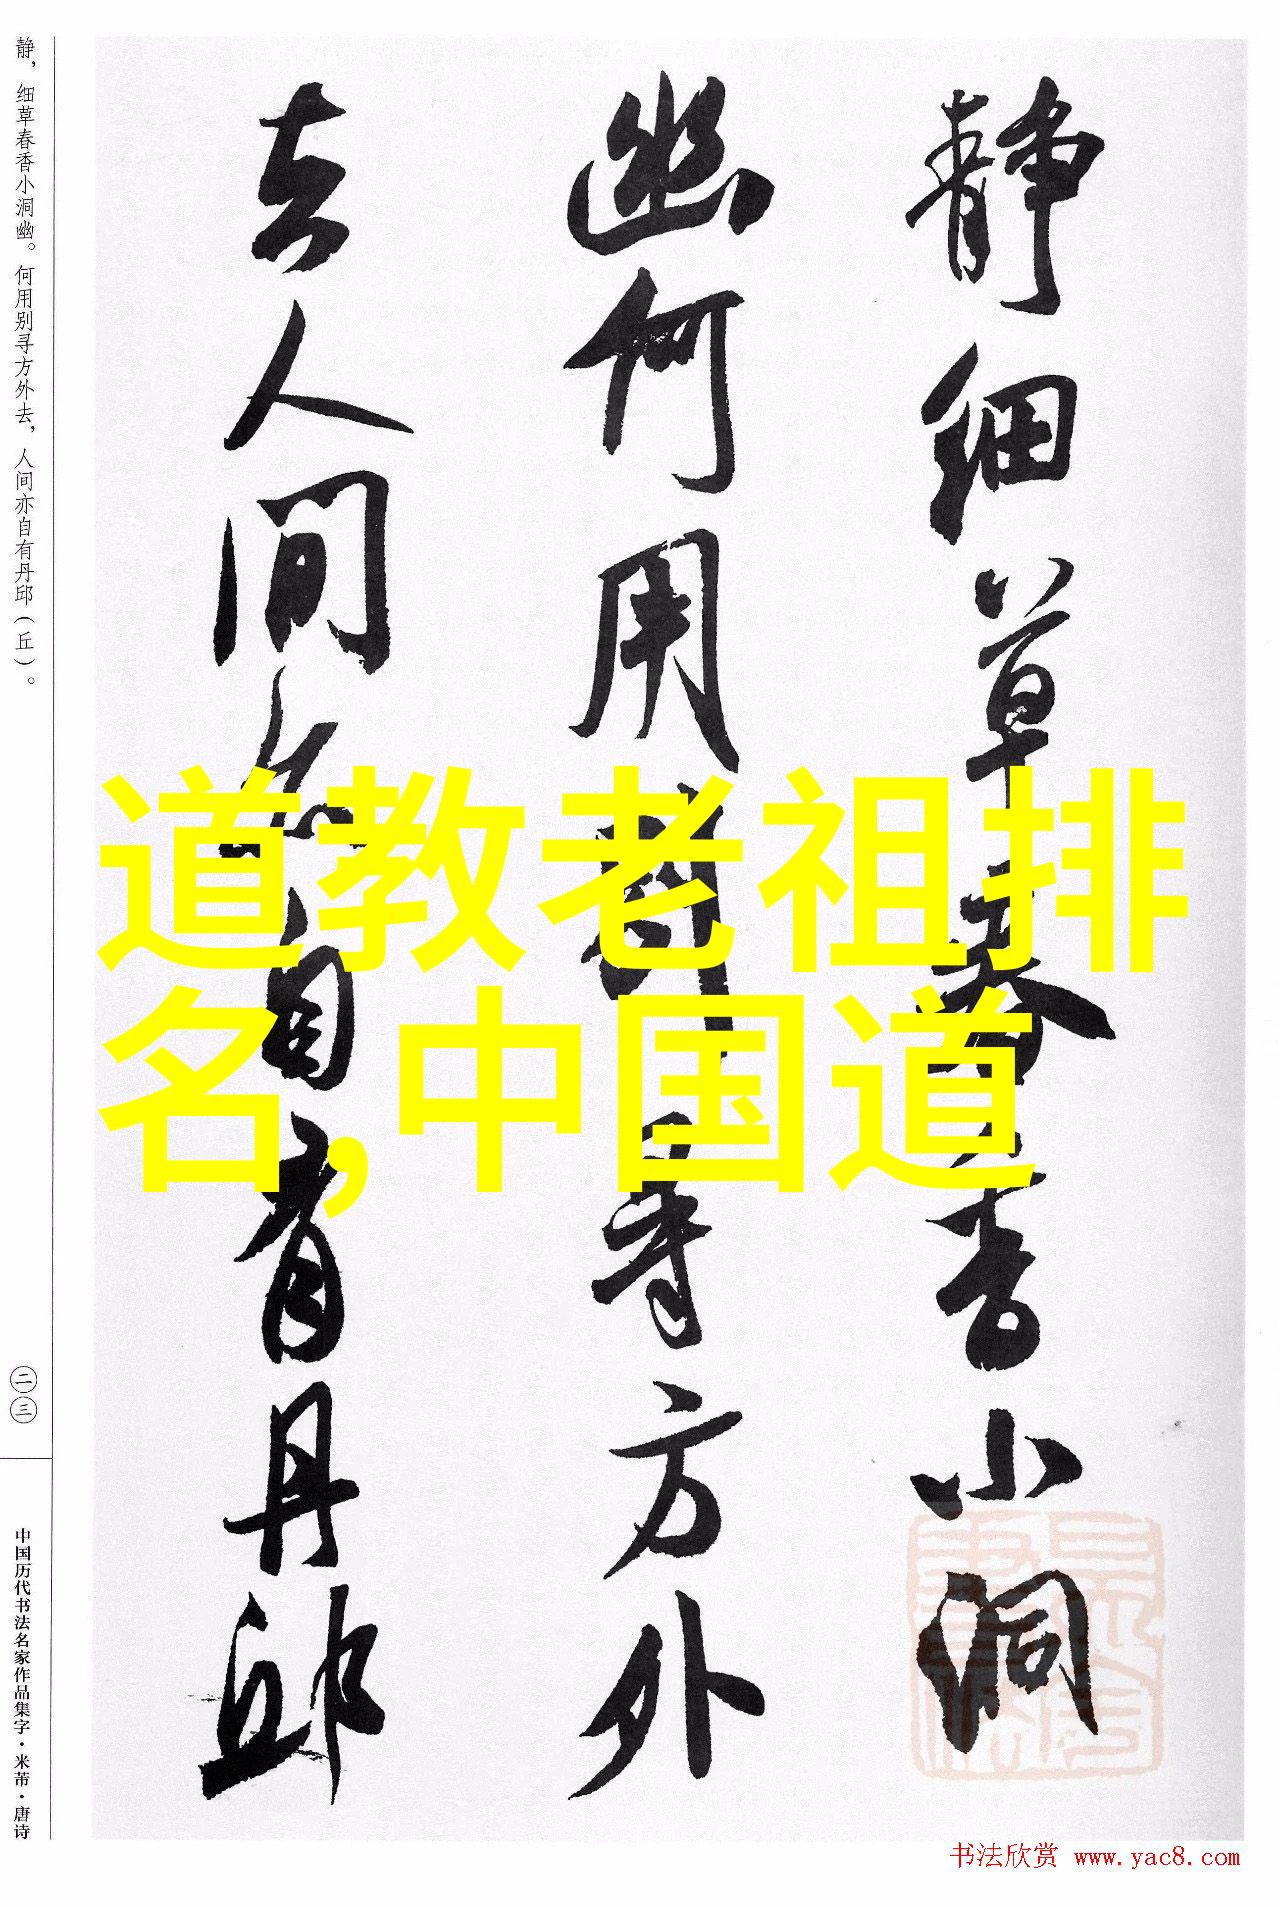 静细草春香小洞
幽何用别寻方外
去人间亦自有丹邱
道教老祖排
名,中国道
静，细草春香小洞幽。何用别寻方外去，人间亦自有丹邱（丘）。
二三
中国历代书法名家作品集字·米芾·唐诗
书法欣赏 www.yac8.com